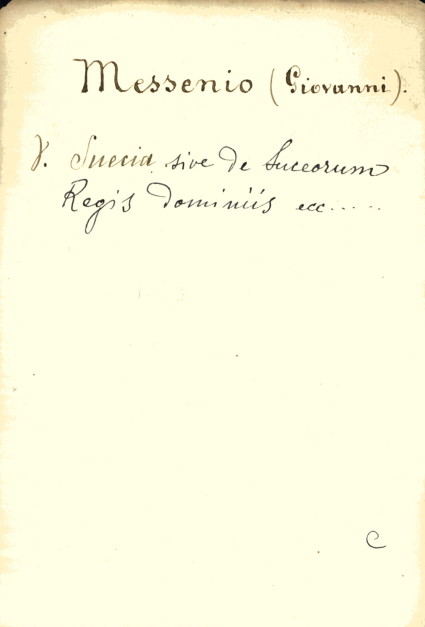 Messenio (Giovanni).
V. Suecia sive de Suecorum
Regis dominiis ecc.....
C